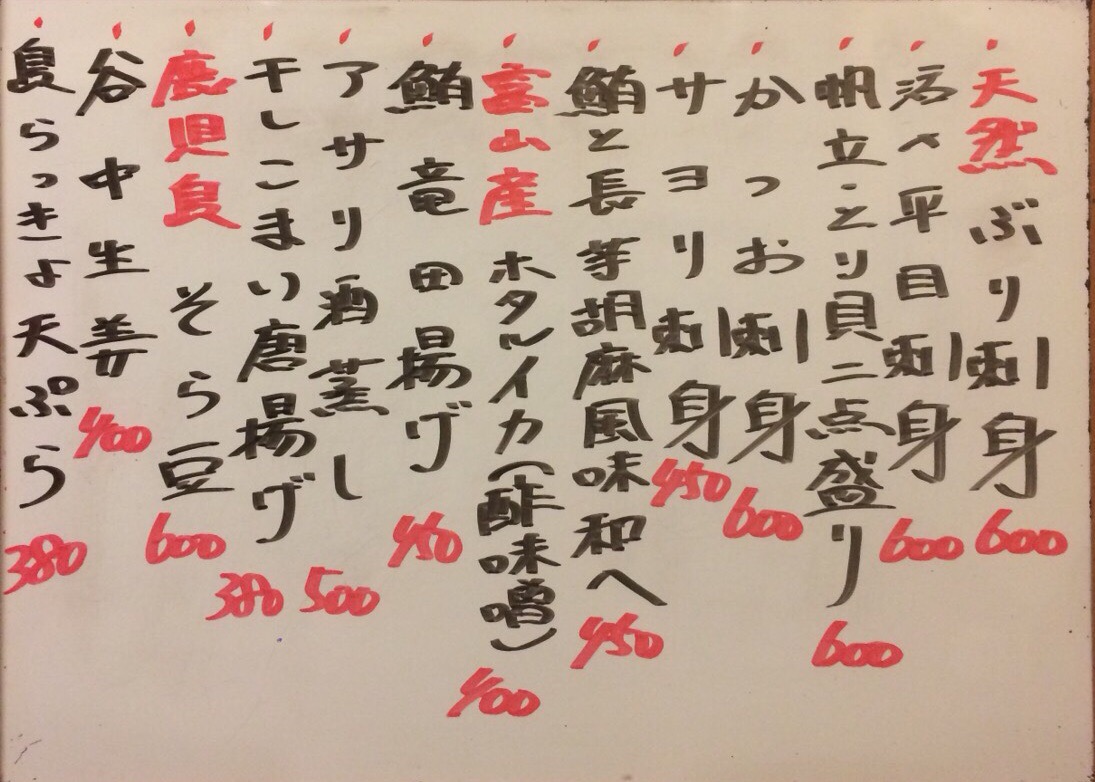 天然ぶり刺身 600
活〆平目刺身 600
帆立とつり貝二点盛り 600
かつお刺身 600
サヨリ刺身 450
鮪と長芋胡麻風味和へ 450
富山産ホタルイカ(酢味噌) 400
鮪竜田揚げ 450
アサリ酒蒸し 500
干しこまい唐揚げ 380
鹿児島そら豆 600
谷中生姜 400
島らっきょ天ぷら 380